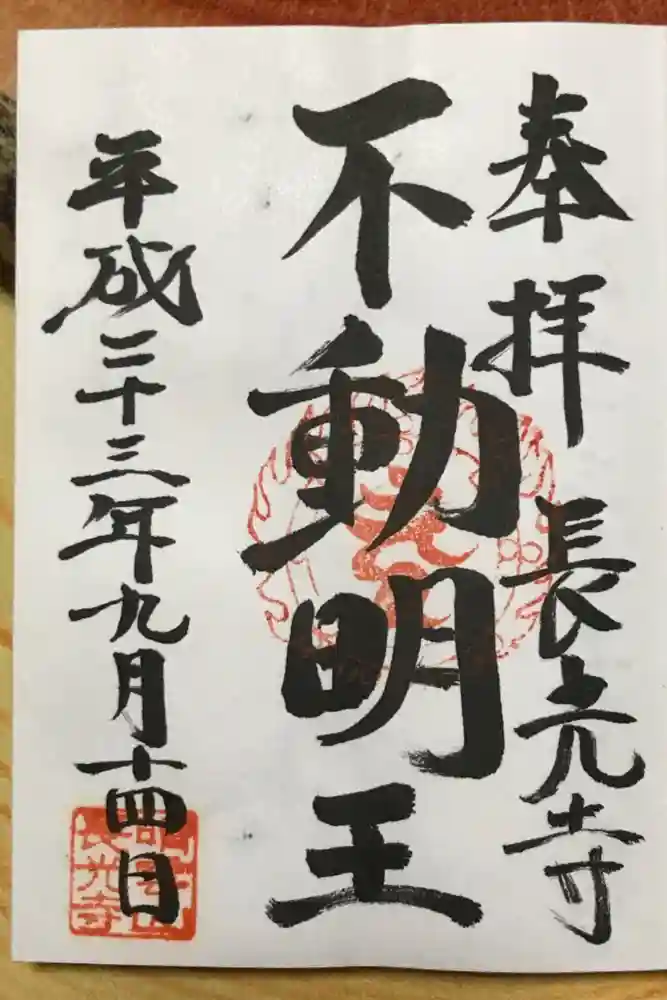 奉拝
長光寺
不動明王
平成二十三年九月十四日
長光寺